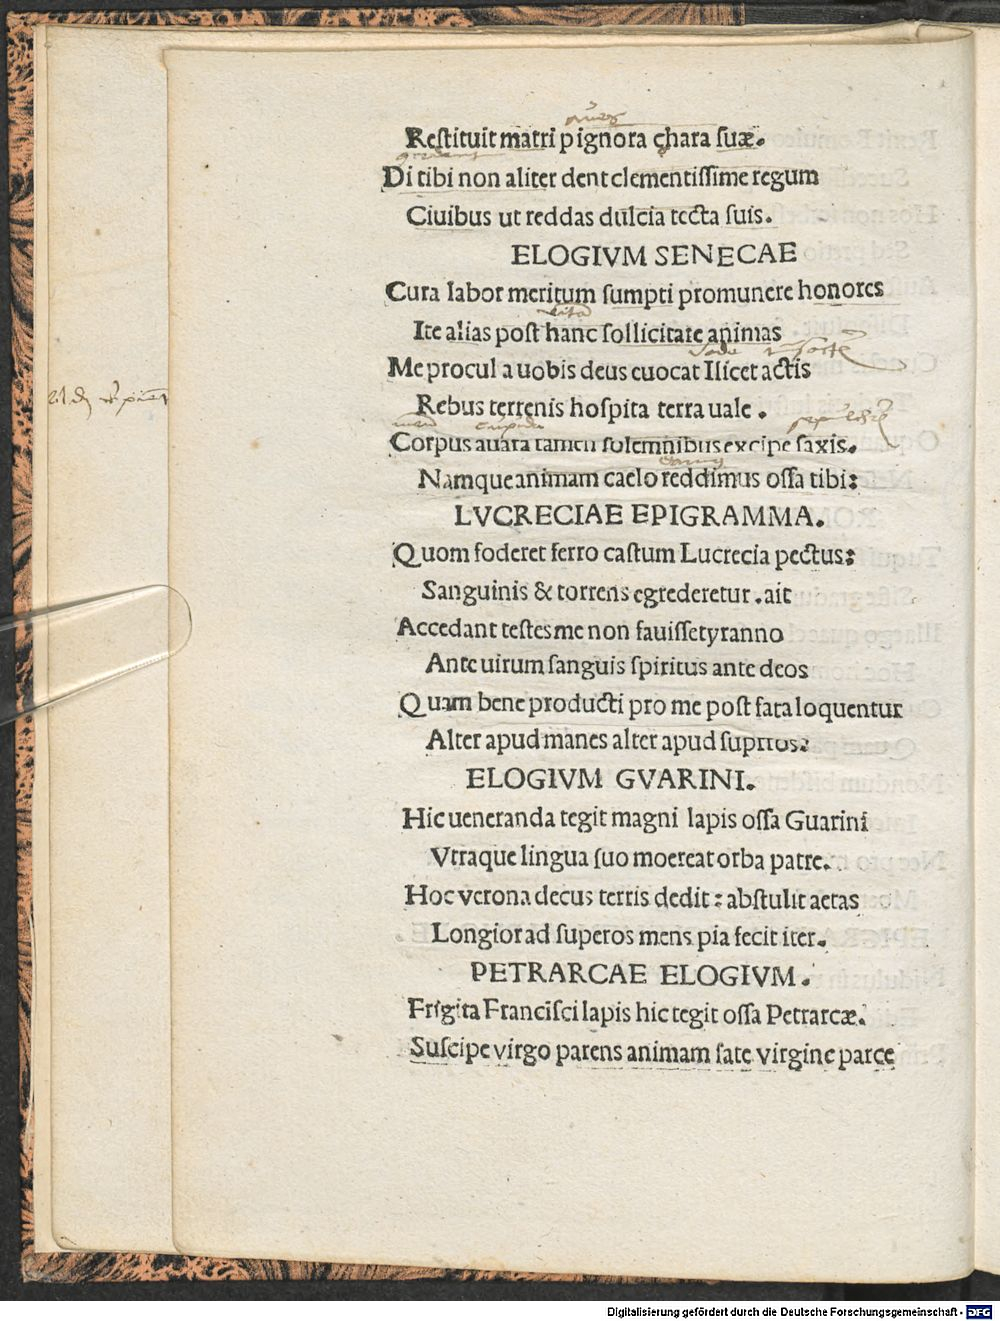 Restituit matri pignora chara suæ.
Di tibi non aliter dent clementissime regum
Ciuibus ut reddas dulcia tecta suis.
ELOGIVM SENECAE
Cura labor meritum sumpti promunere honores
Ite alias post hanc sollicitate animas
Me procul a uobis deus euocat Ilicet actis
Rebus terrenis hospita terra uale.
Corpus auara tamen solemnibus excipe saxis.
Namque animam caelo reddimus ossa tibi:
LVCRECIAE EPIGRAMMA.
Quom foderet ferro castum Lucrecia pectus:
Sanguinis & torrens egrederetur. ait
Accedant testes me non fauisse tyranno
Ante uirum sanguis spiritus ante deos
Quam bene producti pro me post fata loquentur
Alter apud manes alter apud supriios:
ELOGIVM GVARINI.
Hic ueneranda tegit magni lapis ossa Guarini
Vtraque lingua suo moereat orba patre.
Hoc verona decus terris dedit: abstulit aetas
Longior ad superos mens pia fecit iter.
PETRARCAE ELOGIVM.
Frigita Francisci lapis hic tegit ossa Petrarcæ.
Suscipe virgo parens animam sate virgine parce
Digitalisierung gefördert durch die Deutsche Forschungsgemeinschaft - DFG